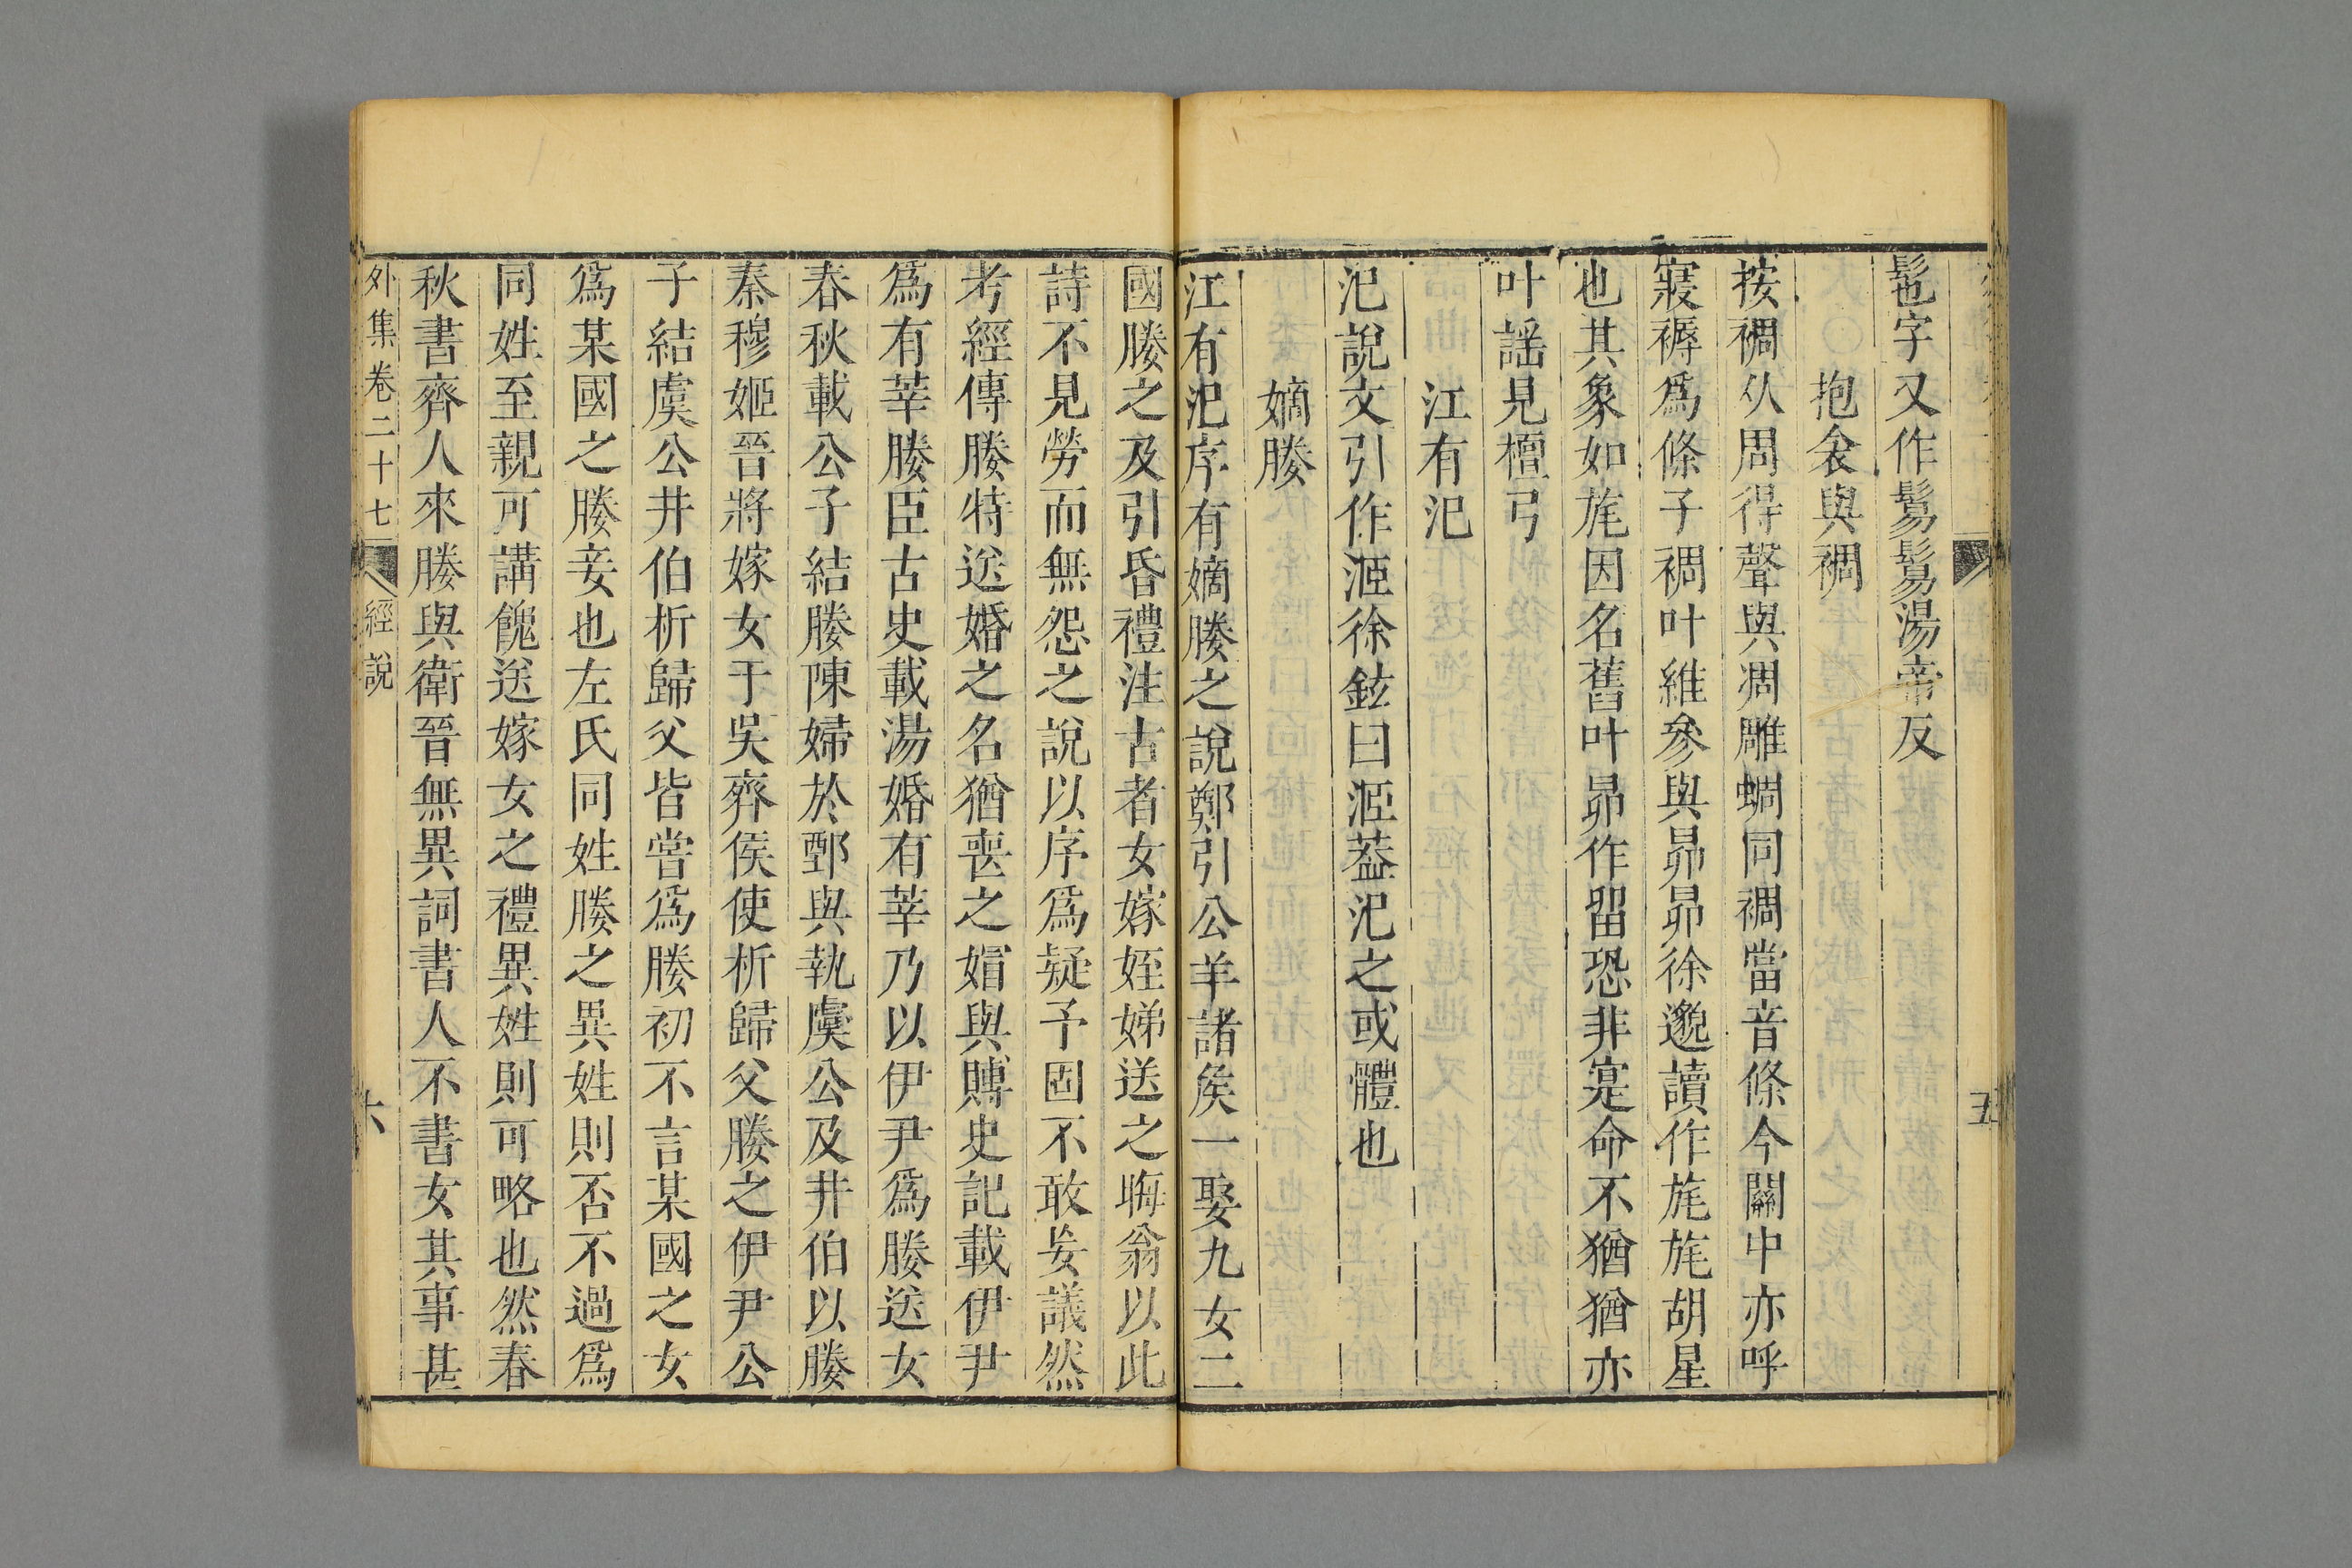 髢也字又作鬄鬄湯帝反
抱衾與裯
按裯从周得聲與凋雕蜩同裯當音條今關中亦呼
寢褥爲條子裯叶維參與昴昴徐邈讀作旄旄胡星
也其象如旄因名舊叶昴作畱恐非寔命不猶猶亦
叶謡見檀弓
江有汜
汜說文引作洍徐鉉曰洍葢汜之或體也
嫡媵
江有汜序有嫡媵之說鄭引公羊諸矦一娶九女二
國媵之及引昏禮注古者女嫁姪娣送之晦翁以此
詩不見勞而無怨之說以序爲疑予固不敢妄議然
考經傳媵特送婚之名猶喪之媢與賻史記載伊尹
爲有莘媵臣古史載湯婚有莘乃以伊尹爲媵送女
春秋載公子結媵陳婦於鄄與執虞公及井伯以媵
秦穆姬晉將嫁女于吳齊侯使析歸父媵之伊尹公
子結虞公井伯析歸父皆嘗爲媵初不言某國之女
爲某國之媵妾也左氏同姓媵之異姓則否不過爲
同姓至親可講餽送嫁女之禮異姓則可略也然春
秋書齊人來媵與衛晉無異詞書人不書女其事甚
外集卷二十七 經說 六
五